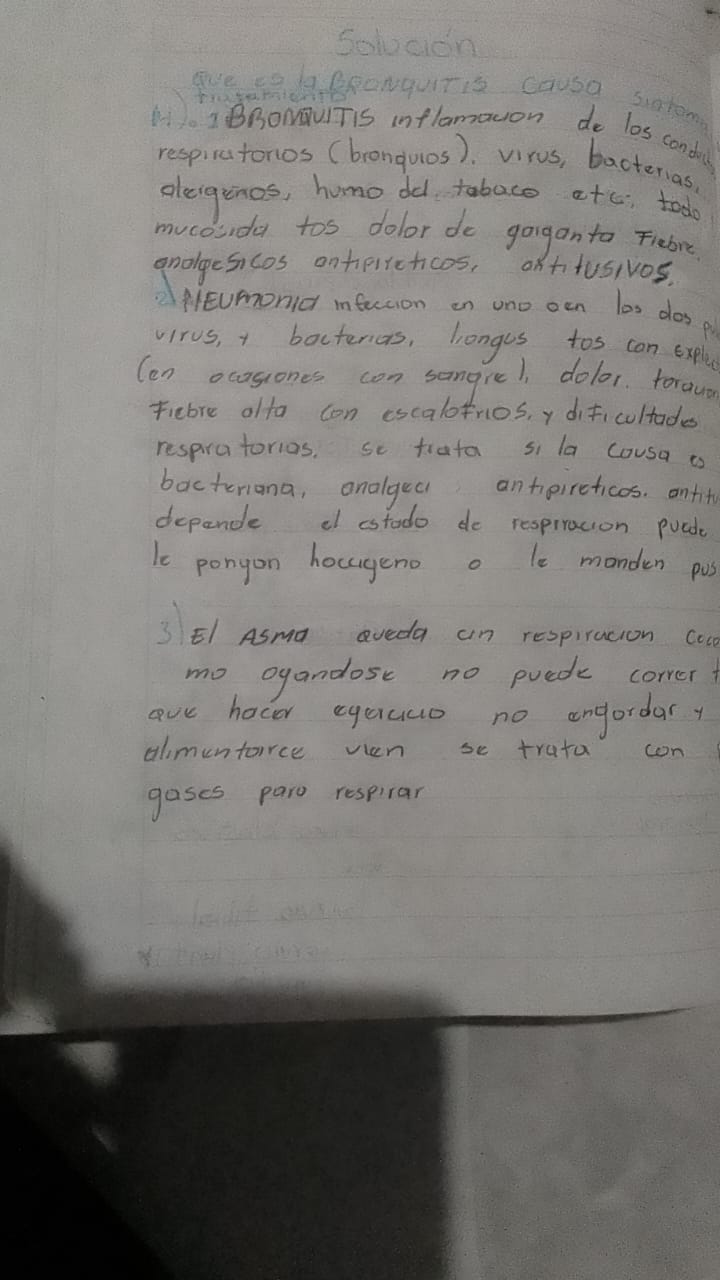 Solución
que es la BRONQUITIS causa sintoma
tratamiento
1 BRONQUITIS inflamacion de los conduc
respiratorios (bronquios). virus, bacterias,
alergenos, humo del tabaco etc; todo
mucosida tos dolor de garganta Fiebre.
analgesicos antipireticos, antitusivos.
2) NEUMONIA infeccion en uno o en los dos pu
virus, y bacterias, hongus tos con explec
(en ocasiones con sangre), dolor. toraxon
Fiebre alta con escalofrios, y dificultades
respiratorias. se trata si la causa es
bacteriana, analgeci antipireticos. antitu
depende el estado de respiracion puede
le pongan hocugeno o le manden pus
3) El ASMA queda cin respiracion coco
mo ogandose no puede correr t
que hacer egercicio no engordar y
alimentarce vien se trata con
gases para respirar